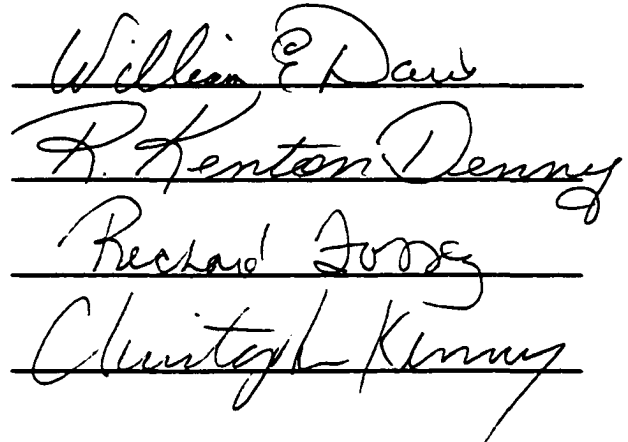 William E Davis
R. Kenton Denny
Richard Fossey
Christopher Kenny